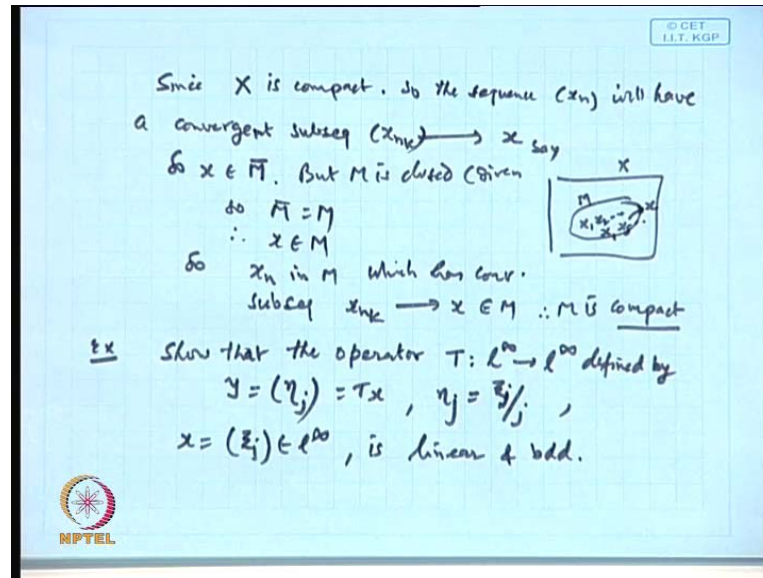 © CET
I.I.T. KGP
Since X is compact. So the sequence (xn) will have
a convergent subseq (xnk) ⟶ x say
So x ∈ M̄. But M is closed (Given
so M̄ = M
∴ x ∈ M
So xn in M which has conv.
subseq xnk ⟶ x ∈ M ∴ M is compact
X
M
x
x1 x2 ...
Ex Show that the operator T: l^∞ → l^∞ defined by
y = (ηj) = Tx , ηj = ξj/j ,
x = (ξj) ∈ l^∞ , is linear & bdd.
NPTEL